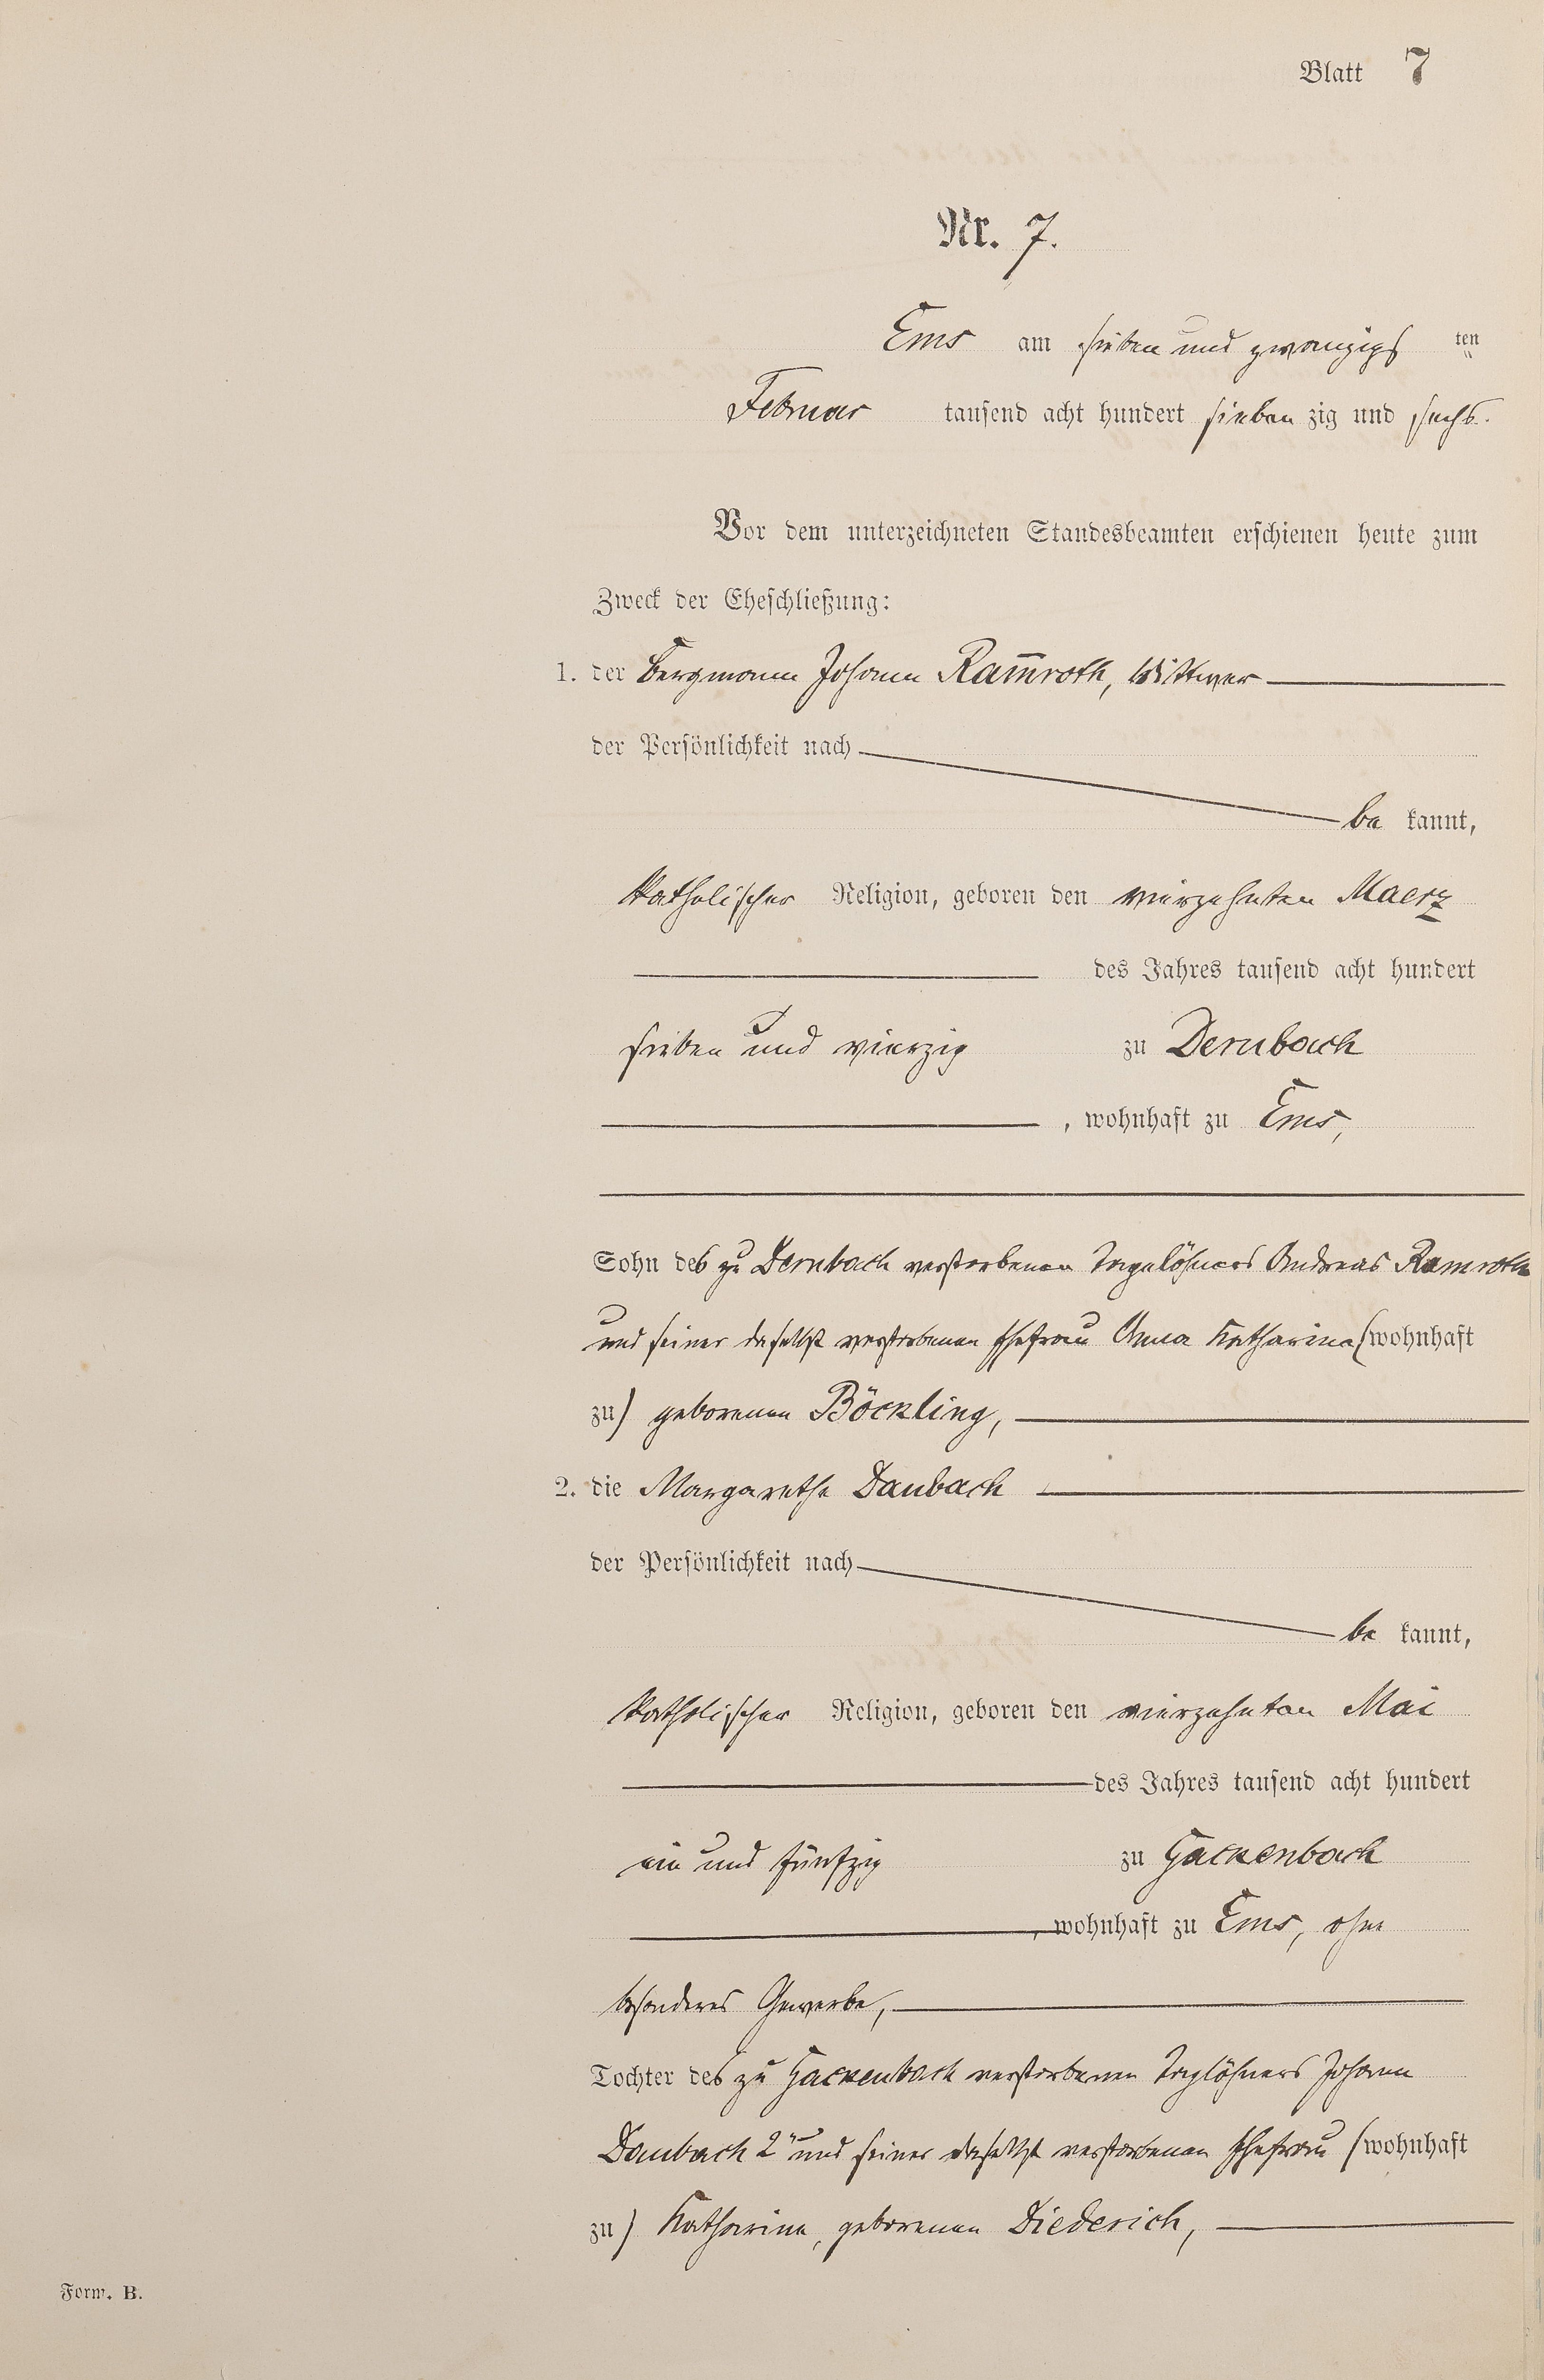 Blatt 7
Nr. 7.
Ems am sieben und zwanzigs ten
Februar tausend acht hundert sieben zig und sechs.
Vor dem unterzeichneten Standesbeamten erschienen heute zum
Zweck der Eheschließung:
1. der Bergmann Johann Ram̅roth, Wittwer
der Persönlichkeit nach
be kannt,
katholischer Religion, geboren den vierzehnten Maerz
des Jahres tausend acht hundert
sieben und vierzig zu Dernbach
, wohnhaft zu Ems,
Sohn des zu Dernbach verstorbenen Tagelöhners Andreas Ramroth
und seiner daselbst verstorbenen Ehefrau Anna Katharina (wohnhaft
zu) geborenen Böckling,
2. die Margarethe Daubach
der Persönlichkeit nach
be kannt,
katholischer Religion, geboren den vierzehnten Mai
des Jahres tausend acht hundert
ein und fünfzig zu Gackenbach
, wohnhaft zu Ems, ohne
besonderes Gewerbe,
Tochter des zu Gackenbach verstorbenen Taglöhners Johann
Daubach 2" und seiner daselbst verstorbenen Ehefrau (wohnhaft
zu) Katharina, geborenen Diederich,
Form. B.